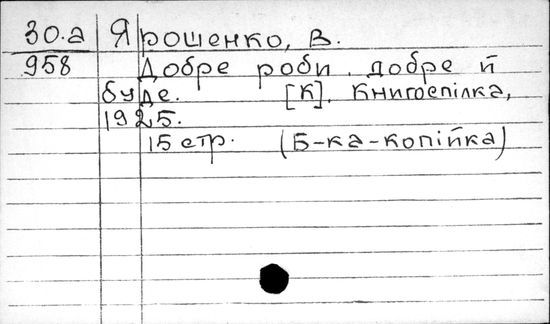 30.а Ярошенко, В.
958 Добре роби, добре й
буде. [К]. Книгоспілка,
1925.
15 стр. (Б-ка-копійка)